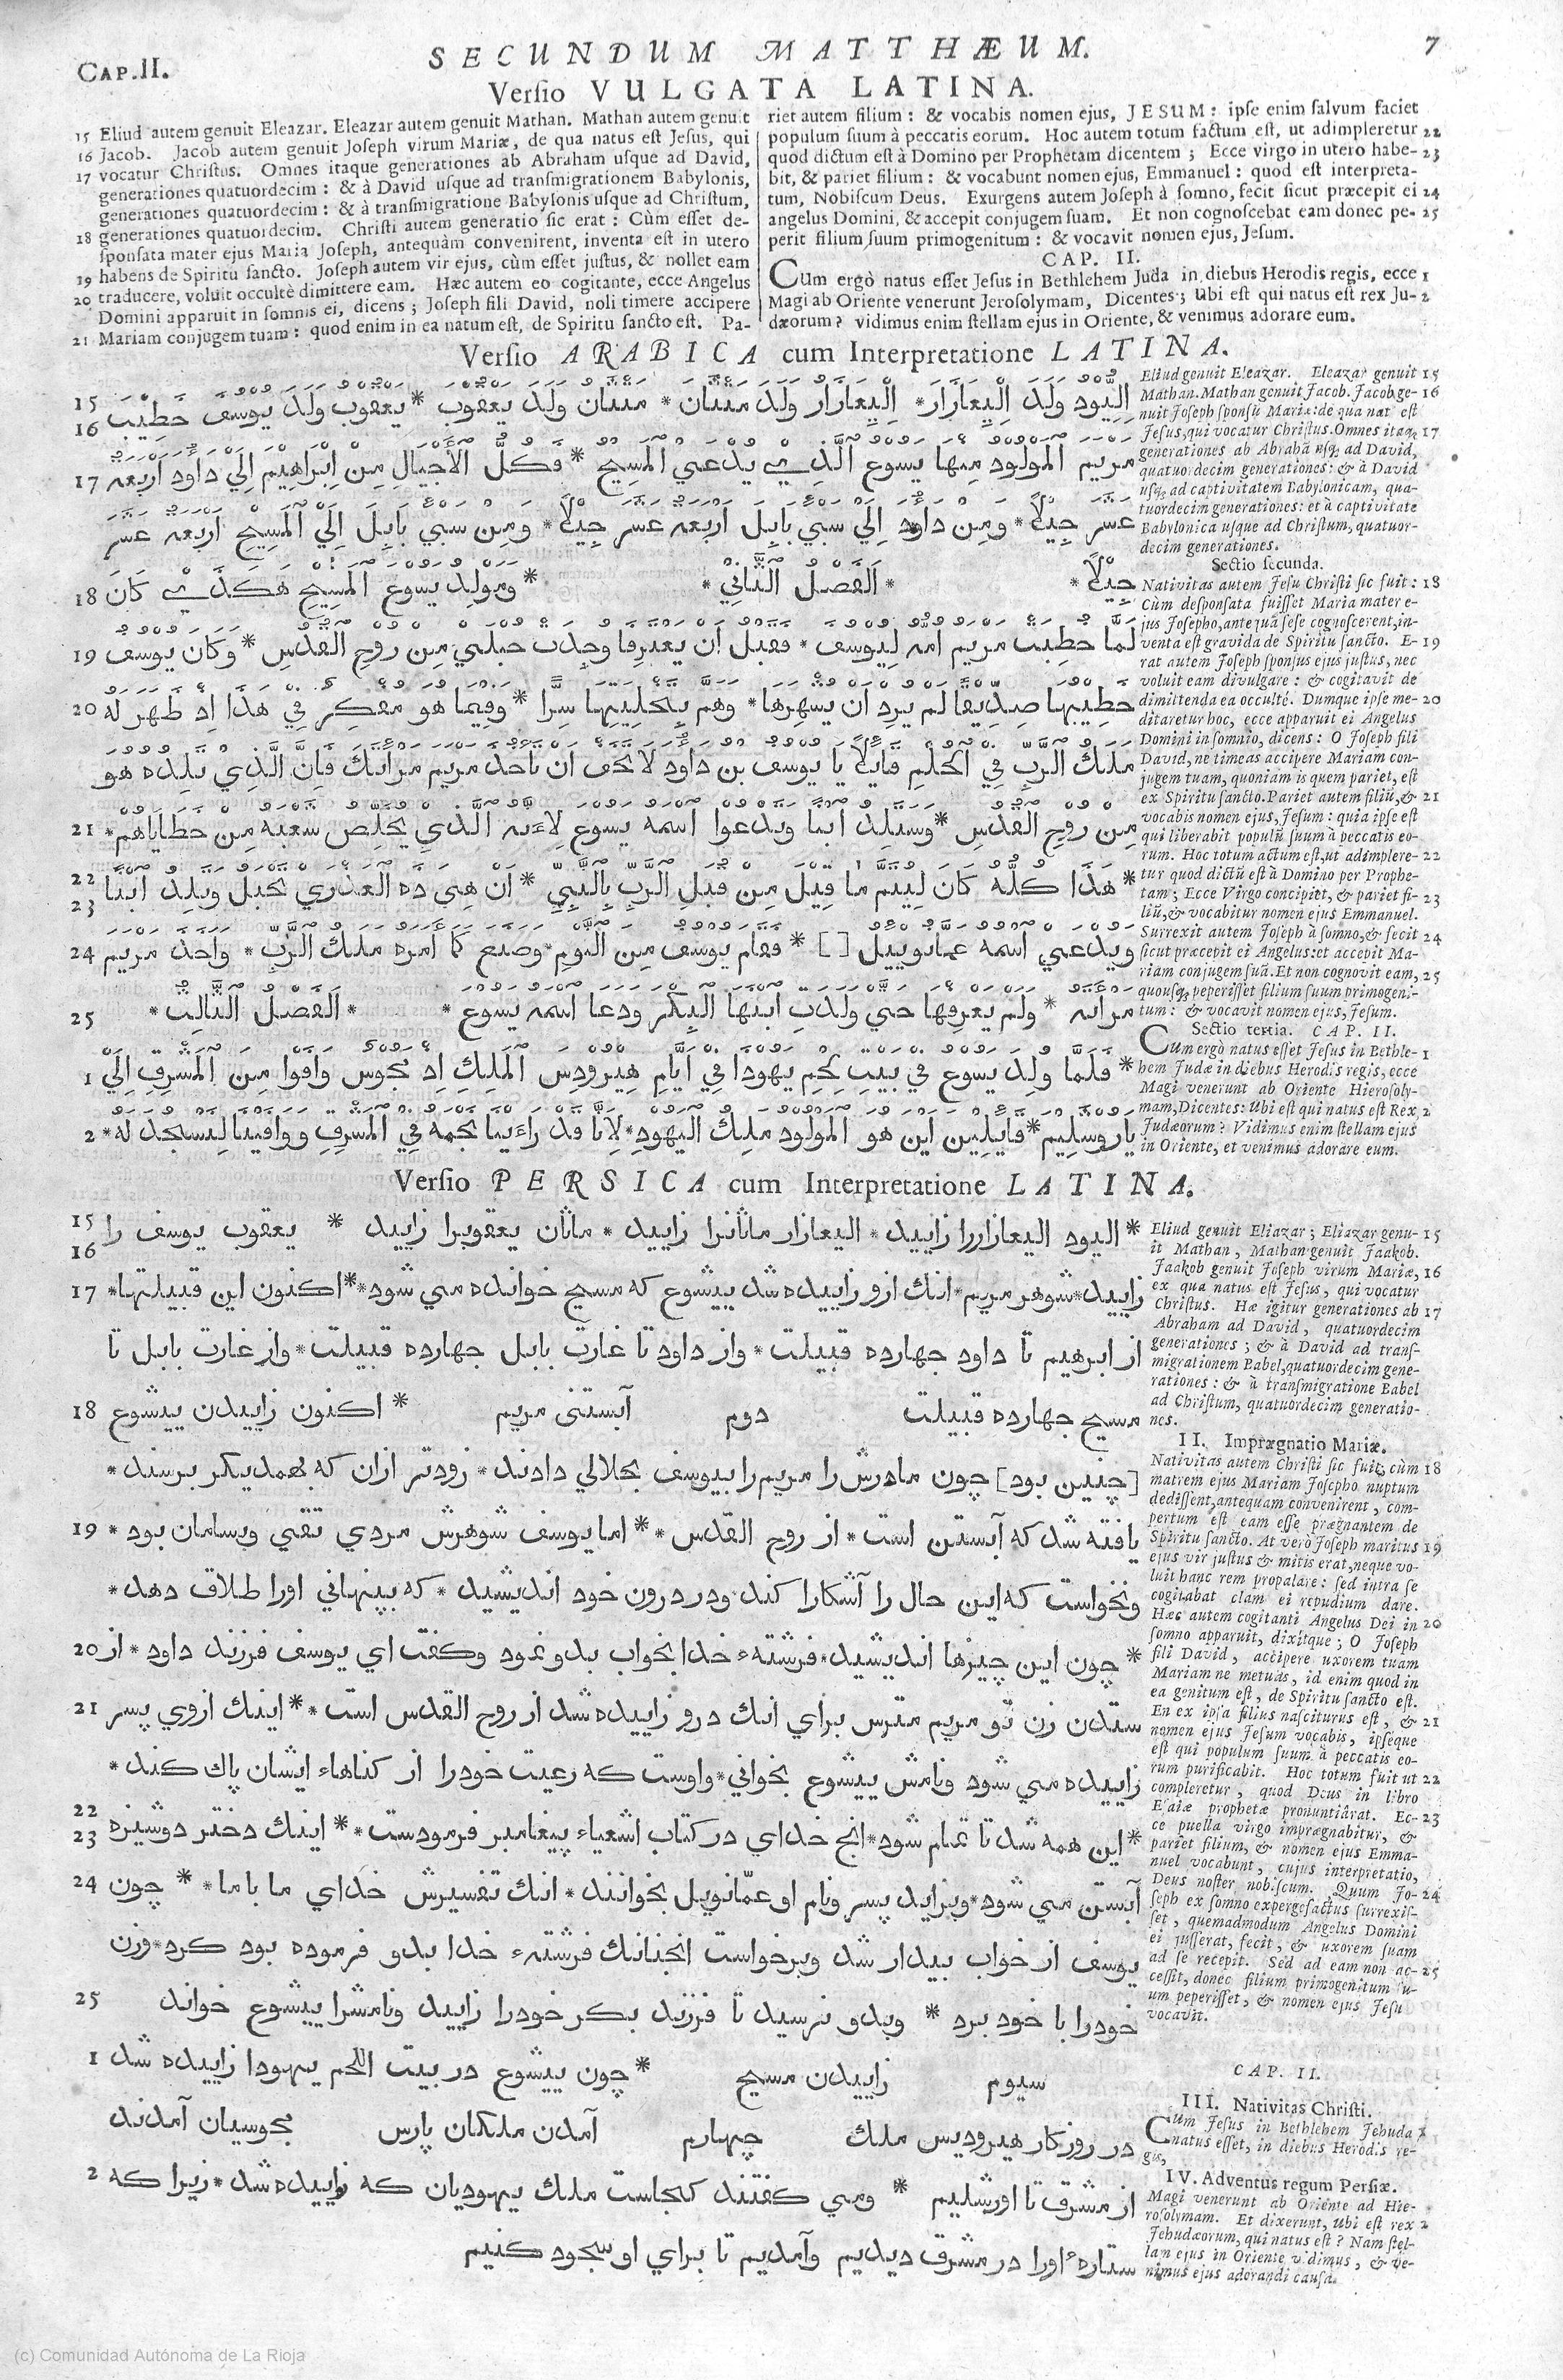 CAP.II.
SECUNDUM MATTHÆUM.
7
Versio VULGATA LATINA.
15 Eliud autem genuit Eleazar. Eleazar autem genuit Mathan. Mathan autem genuit
16 Jacob. Jacob autem genuit Joseph virum Mariæ, de qua natus est Jesus, qui
17 vocatur Christus. Omnes itaque generationes ab Abraham usque ad David,
generationes quatuordecim: & à David usque ad transmigrationem Babylonis,
generationes quatuordecim: & à transmigratione Babylonis usque ad Christum,
18 generationes quatuordecim. Christi autem generatio sic erat: Cùm esset de-
sponsata mater ejus Maria Joseph, antequàm convenirent, inventa est in utero
19 habens de Spiritu sancto. Joseph autem vir ejus, cùm esset justus, & nollet eam
20 traducere, voluit occultè dimittere eam. Hæc autem eo cogitante, ecce Angelus
Domini apparuit in somnis ei, dicens; Joseph fili David, noli timere accipere
21 Mariam conjugem tuam: quod enim in ea natum est, de Spiritu sancto est. Pa-
riet autem filium: & vocabis nomen ejus, JESUM: ipse enim salvum faciet
populum suum à peccatis eorum. Hoc autem totum factum est, ut adimpleretur 22
quod dictum est à Domino per Prophetam dicentem; Ecce virgo in utero habe- 23
bit, & pariet filium: & vocabunt nomen ejus, Emmanuel: quod est interpreta-
tum, Nobiscum Deus. Exurgens autem Joseph à somno, fecit sicut præcepit ei 24
angelus Domini, & accepit conjugem suam. Et non cognoscebat eam donec pe- 25
perit filium suum primogenitum: & vocavit nomen ejus, Jesum.
CAP. II.
CUm ergò natus esset Jesus in Bethlehem Juda in diebus Herodis regis, ecce 1
Magi ab Oriente venerunt Jerosolymam, Dicentes; Ubi est qui natus est rex Ju- 2
dæorum? vidimus enim stellam ejus in Oriente, & venimus adorare eum.
Versio ARABICA cum Interpretatione LATINA.
15 اِلِيُّوْد وَلَدَ اِلْيِعَازَارَ * اِلْيِعَازَارُ وَلَدَ مَتْثَانَ * مَتْثَانُ وَلَدَ يَعْقُوبَ * يَعْقُوبُ وَلَدَ يُوسُفَ خَطِيْبَ
16
17 مريم المولود منها يسوع الذي يدعى المسيح * فكل الأجيال من ابراهيم الي داود اربعة
عشر جيلا * ومن داود الي سبي بابل اربعة عشر جيلا * ومن سبي بابل الي المسيح اربعة عشر
جيلا * الفصل الثاني *
18 * ومولد يسوع المسيح هكذي كان
19 لما خطبت مريم امه ليوسف * فقبل ان يعترفا وجدت حبلي من روح القدس * وكان يوسف
20 خطيبها صديقا لم يرد ان يشهرها * وهم بتخليتها سرا * وفيما هو مفكر في هذا اذ ظهر له
ملك الرب في الحلم قايلا يا يوسف بن داود لا تخف ان تاخذ مريم مرأتك فان الذي تلده هو
21 من روح القدس * وستلد ابنا ويدعوا اسمه يسوع لانه الذي يخلص شعبه من خطاياهم *
22 * هذا كله كان ليتم ما قيل من قبل الرب بالنبي * ان هي ذه العذري تحبل وتلد ابنا
23
24 ويدعي اسمه عمانوييل [ ] * فقام يوسف من النوم * وصنع كما امره ملك الرب * واخذ مريم
25 مرأته * ولم يعرفها حتي ولدت ابنها البكر ودعا اسمه يسوع * * الفصل الثالث *
1 * فلما ولد يسوع في بيت لحم يهوذا في ايام هيرودس الملك اذ مجوس وافوا من المشرق الي
2 ياروسليم * قايلين اين هو المولود ملك اليهود * لانا قد راءينا نجمه في المشرق ووافينا لنسجد له *
Eliud genuit Eleazar. Eleazar genuit 15
Mathan. Mathan genuit Jacob. Jacob ge- 16
nuit Joseph sponsū Mariæ: de qua nat' est
Jesus, qui vocatur Christus. Omnes itaq; 17
generationes ab Abrahā usq; ad David,
quatuordecim generationes: & à David
usq; ad captivitatem Babylonicam, qua-
tuordecim generationes: et à captivitate
Babylonica usque ad Christum, quatuor-
decim generationes.
Sectio secunda.
Nativitas autem Jesu Christi sic fuit: 18
Cùm desponsata fuisset Maria mater e-
jus Josepho, ante quā sese cognoscerent, in-
venta est gravida de Spiritu sancto. E- 19
rat autem Joseph sponsus ejus justus, nec
voluit eam divulgare: & cogitavit de
dimittenda ea occultè. Dumque ipse me- 20
ditaretur hoc, ecce apparuit ei Angelus
Domini in somnio, dicens: O Joseph fili
David, ne timeas accipere Mariam con-
jugem tuam, quoniam is quem pariet, est
ex Spiritu sancto. Pariet autem filiū, & 21
vocabis nomen ejus, Jesum: quia ipse est
qui liberabit populū suum à peccatis eo-
rum. Hoc totum actum est, ut adimplere- 22
tur quod dictū est à Domino per Prophe-
tam; Ecce Virgo concipiet, & pariet fi- 23
liū, & vocabitur nomen ejus Emmanuel.
Surrexit autem Joseph à somno, & fecit 24
sicut præcepit ei Angelus: et accepit Ma-
riam conjugem suā. Et non cognovit eam, 25
quousq; peperisset filium suum primogeni-
tum: & vocavit nomen ejus, Jesum.
Sectio tertia. CAP. II.
CUm ergò natus esset Jesus in Bethle- 1
hem Judæ in diebus Herodis regis, ecce
Magi venerunt ab Oriente Hierosoly-
mam, Dicentes: Ubi est qui natus est Rex 2
Judæorum? Vidimus enim stellam ejus
in Oriente, et venimus adorare eum.
Versio PERSICA cum Interpretatione LATINA.
15 * اليود اليعازاررا زاييد * اليعازار ماثانرا زاييد * ماثان يعقوبرا زاييد * يعقوب يوسف را
16
17 زاييد * شوهر مريم * انك ازو زاييده شد ييشوع كه مسيح خوانده مي شود * * اكنون اين قبيلتها *
از ابرهيم تا داود جهارده قبيلت * واز داود تا غارت بابل جهارده قبيلت * واز غارت بابل تا
مسيح جهارده قبيلت دوم آبستنى مريم
18 * اكنون زاييدن ييشوع
[چنين بود] چون مادرش را مريم را بيوسف بحلالي دادند * زودتر ازان كه بهمديكر برسند *
19 يافته شد كه آبستن است * از روح القدس * * اما يوسف شوهرش مردي تقي وبسامان بود *
ونخواست كه اين حال را آشكارا كند ودر درون خود انديشيد * كه بپنهاني اورا طلاق دهد *
20 * چون اين چيزها انديشيد * فرشتهء خدا بخواب بدو نمود وكفت اي يوسف فرزند داود * از
21 ستدن زن تو مريم مترس براي انك درو زاييده شد از روح القدس است * * اينك ازوي پسر
زاييده مي شود ونامش ييشوع بخواني * واوست كه رعيت خودرا از كناهاء ايشان پاك كند *
22 * اين همه شد تا تمام شود * انج خداي در كتاب اشعياء پيغامبر فرمودست * * اينك دختر دوشيزه
23
24 آبستن مي شود * وبزايد پسر ونام او عمّانويل بخوانند * انك تفسيرش خداي ما با ما * * چون
يوسف از خواب بيدار شد وبرخواست انجنانك فرشتهء خدا بدو فرموده بود كرد * وزن
25 خودرا با خود برد * وبدو نرسيد تا فرزند بكر خودرا زاييد ونامشرا ييشوع خواند
1 سيوم زاييدن مسيح * چون ييشوع در بيت اللحم يهودا زاييده شد
در روزكار هيروديس ملك چهارم آمدن ملكان پارس مجوسيان آمدند
2 از مشرق تا اورشليم * ومي كفتند كجاست ملك يهوديان كه زاييده شد * زيرا كه
ستارهٔ اورا در مشرق ديديم وآمديم تا براي او سجود كنيم
Eliud genuit Eliazar; Eliazar genu- 15
it Mathan, Mathan genuit Jaakob.
Jaakob genuit Joseph virum Mariæ, 16
ex qua natus est Jesus, qui vocatur
Christus. Hæ igitur generationes ab 17
Abraham ad David, quatuordecim
generationes; & à David ad trans-
migrationem Babel, quatuordecim gene-
rationes: & à transmigratione Babel
ad Christum, quatuordecim generatio-
nes.
II. Imprægnatio Mariæ.
Nativitas autem Christi sic fuit; cùm 18
matrem ejus Mariam Josepho nuptum
dedissent, antequam convenirent, com-
pertum est eam esse prægnantem de
Spiritu sancto. At verò Joseph maritus 19
ejus vir justus & mitis erat, neque vo-
luit hanc rem propalare: sed intra se
cogitabat clam ei repudium dare.
Hæc autem cogitanti Angelus Dei in 20
somno apparuit, dixitque; O Joseph
fili David, accipere uxorem tuam
Mariam ne metuas, id enim quod in
ea genitum est, de Spiritu sancto est.
En ex ipsa filius nasciturus est, & 21
nomen ejus Jesum vocabis, ipseque
est qui populum suum à peccatis eo-
rum purificabit. Hoc totum fuit ut 22
compleretur, quod Deus in libro
Esaiæ prophetæ pronuntiârat. Ec- 23
ce puella virgo imprægnabitur, &
pariet filium, & nomen ejus Emma-
nuel vocabunt, cujus interpretatio,
Deus noster nobiscum. Quum Jo- 24
seph ex somno expergefactus surrexis-
set, quemadmodum Angelus Domini
ei jusserat, fecit, & uxorem suam
ad se recepit. Sed ad eam non ac- 25
cessit, donec filium primogenitum su-
um peperisset, & nomen ejus Jesu
vocavit.
CAP. II.
III. Nativitas Christi.
CUm Jesus in Bethlehem Jehuda 1
natus esset, in diebus Herodis re-
gis,
IV. Adventus regum Persiæ.
Magi venerunt ab Oriente ad Hie-
rosolymam. Et dixerunt, Ubi est rex 2
Jehudæorum, qui natus est? Nam stel-
lam ejus in Oriente vidimus, & ve-
nimus ejus adorandi causa.
(c) Comunidad Autónoma de La Rioja